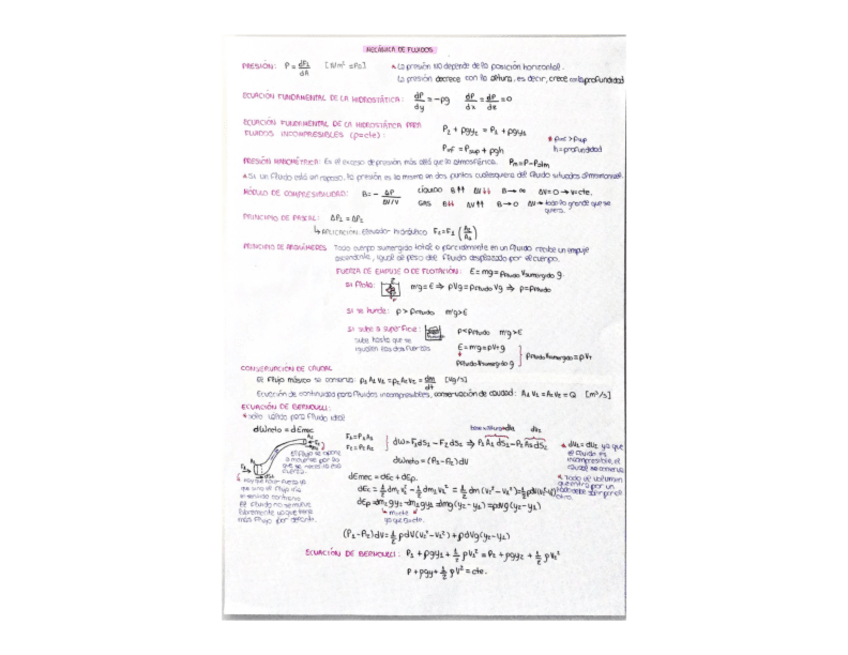 MECÁNICA DE FLUIDOS
PRESIÓN: P = dF⊥/dA [N/m² = Pa] * La presión NO depende de la posición horizontal.
La presión decrece con la altura, es decir, crece con la profundidad
ECUACIÓN FUNDAMENTAL DE LA HIDROSTÁTICA: dP/dy = -ρg dP/dx = dP/dz = 0
ECUACIÓN FUNDAMENTAL DE LA HIDROSTÁTICA PARA
FLUIDOS INCOMPRESIBLES (ρ=cte): P₂ + ρgy₂ = P₁ + ρgy₁
Pinf = Psup + ρgh * Pinf > Psup
h = profundidad
PRESIÓN MANOMÉTRICA: Es el exceso de presión más allá que la atmosférica. Pm = P - Patm
* Si un fluido está en reposo, la presión es la misma en dos puntos cualesquiera del fluido situados
MÓDULO DE COMPRESIBILIDAD: B = - ΔP/ΔV/V LÍQUIDO B↑↑ ΔV↓↓ B→∞ ΔV=0 → V=cte.
GAS B↓↓ ΔV↑↑ B→0 ΔV→ todo lo grande que se
quiera.
PRINCIPIO DE PASCAL: ΔP₁ = ΔP₂
↳ APLICACIÓN: Elevador hidráulico F₂ = F₁ (A₂/A₁)
PRINCIPIO DE ARQUÍMEDES: Todo cuerpo sumergido total o parcialmente en un fluido recibe un empuje
ascendente, igual al peso del fluido desplazado por el cuerpo.
FUERZA DE EMPUJE O DE FLOTACIÓN: E = mg = ρfluido Vsumergido g.
Si flota: m'g = E ⇒ ρVg = ρfluido Vg ⇒ ρ = ρfluido
Si se hunde: ρ > ρfluido m'g > E
Si sube a superficie: ρ < ρfluido m'g > E
sube hasta que se
igualen las dos fuerzas E = m'g = ρVtg
ρfluido Vsumergido g } ρfluido Vsumergido = ρVt
CONSERVACIÓN DE CAUDAL
El flujo másico se conserva: ρ₁A₁V₁ = ρ₂A₂V₂ = dm/dt [kg/s]
Ecuación de continuidad para fluidos incompresibles, conservación de caudal: A₁V₁ = A₂V₂ = Q [m³/s]
ECUACIÓN DE BERNOULLI:
* Sólo válida para fluido ideal
dWneto = dEmec
F₁ = P₁A₁
F₂ = P₂A₂ } dW = F₁dS₁ - F₂dS₂ ⇒ P₁A₁dS₁ - P₂A₂dS₂
dV₂
* dV₁ = dV₂ ya que
el fluido es
incompresible, el
caudal se conserva
dWneto = (P₁-P₂)dV
El flujo se opone
a moverse por lo
dEmec = dEc + dEp.
* Todo el volumen
que entra por un
dEc = ½ dm₂v₂² - ½ dm₁v₁² = ½ dm (v₂² - v₁²) = ½ ρdV(v₂²-v₁²)
dEp = dm₂gy₂ - dm₁gy₁ = dmg(y₂-y₁) = ρdVg(y₂-y₁)
El fluido no se mueve
libremente ya que
más flujo por delante.
(P₁-P₂)dV = ½ ρdV(v₂²-v₁²) + ρdVg(y₂-y₁)
ECUACIÓN DE BERNOULLI: P₁ + ρgy₁ + ½ ρV₁² = P₂ + ρgy₂ + ½ ρV₂²
P + ρgy + ½ ρV² = cte.